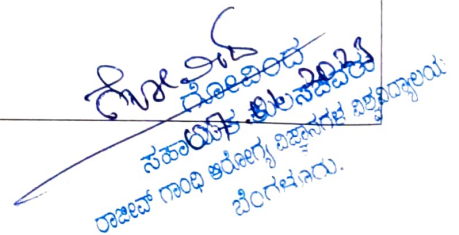 ಗೋವಿಂದ
ಗೋವಿಂದ
ಸಹಾಯಕ ಕುಲಸಚಿವರು
ರಾಜೀವ್ ಗಾಂಧಿ ಆರೋಗ್ಯ ವಿಜ್ಞಾನಗಳ ವಿಶ್ವವಿದ್ಯಾಲಯ
ಬೆಂಗಳೂರು.